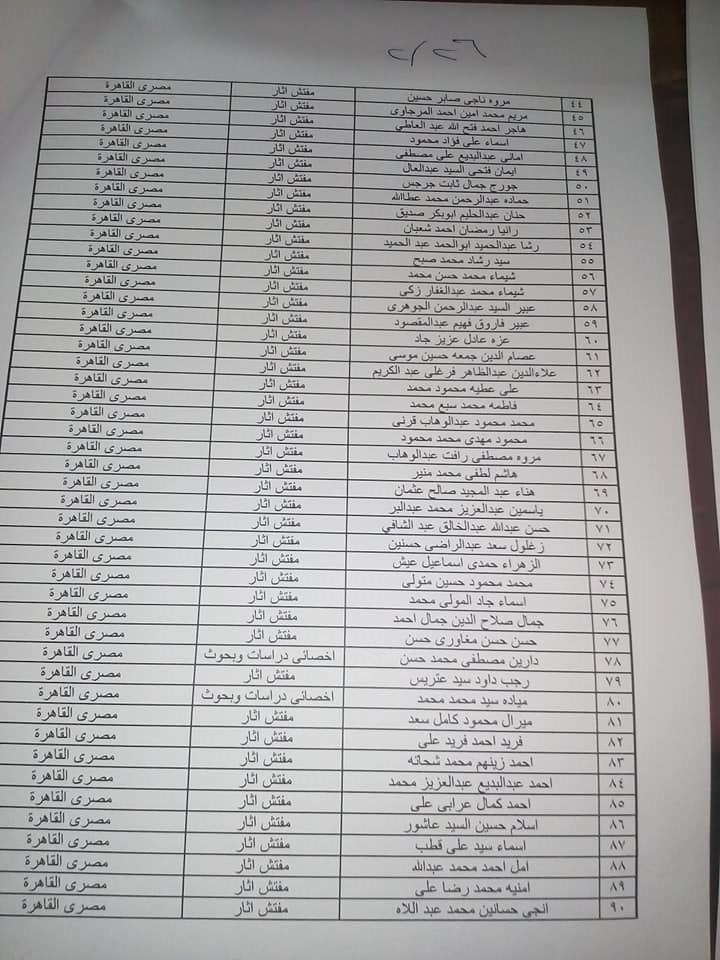 ٤٤ مروه ناجى صابر حسين مفتش اثار مصرى القاهرة
٤٥ مريم محمد امين احمد المرجاوى مفتش اثار مصرى القاهرة
٤٦ هاجر احمد فتح الله عبد العاطي مفتش اثار مصرى القاهرة
٤٧ اسماء على فؤاد محمود مفتش اثار مصرى القاهرة
٤٨ امانى عبدالبديع على مصطفى مفتش اثار مصرى القاهرة
٤٩ ايمان فتحى السيد عبدالعال مفتش اثار مصرى القاهرة
٥٠ جورج جمال ثابت جرجس مفتش اثار مصرى القاهرة
٥١ حماده عبدالرحمن محمد عطاالله مفتش اثار مصرى القاهرة
٥٢ حنان عبدالحليم ابوبكر صديق مفتش اثار مصرى القاهرة
٥٣ رانيا رمضان احمد شعبان مفتش اثار مصرى القاهرة
٥٤ رشا عبدالحميد ابوالحمد عبد الحميد مفتش اثار مصرى القاهرة
٥٥ سيد رشاد محمد صبح مفتش اثار مصرى القاهرة
٥٦ شيماء محمد حسن محمد مفتش اثار مصرى القاهرة
٥٧ شيماء محمد عبدالغفار زكى مفتش اثار مصرى القاهرة
٥٨ عبير السيد عبدالرحمن الجوهرى مفتش اثار مصرى القاهرة
٥٩ عبير فاروق فهيم عبدالمقصود مفتش اثار مصرى القاهرة
٦٠ عزه عادل عزيز جاد مفتش اثار مصرى القاهرة
٦١ عصام الدين جمعه حسين موسى مفتش اثار مصرى القاهرة
٦٢ علاءالدين عبدالظاهر فرغلى عبد الكريم مفتش اثار مصرى القاهرة
٦٣ على عطيه محمود محمد مفتش اثار مصرى القاهرة
٦٤ فاطمه محمد سبع محمد مفتش اثار مصرى القاهرة
٦٥ محمد محمود عبدالوهاب قرنى مفتش اثار مصرى القاهرة
٦٦ محمود مهدى محمد محمود مفتش اثار مصرى القاهرة
٦٧ مروه مصطفى رافت عبدالوهاب مفتش اثار مصرى القاهرة
٦٨ هاشم لطفى محمد منير مفتش اثار مصرى القاهرة
٦٩ هناء عبد المجيد صالح عثمان مفتش اثار مصرى القاهرة
٧٠ ياسمين عبدالعزيز محمد عبدالبر مفتش اثار مصرى القاهرة
٧١ حسن عبدالله عبدالخالق عبد الشافي مفتش اثار مصرى القاهرة
٧٢ زغلول سعد عبدالراضى حسنين مفتش اثار مصرى القاهرة
٧٣ الزهراء حمدى اسماعيل عيش مفتش اثار مصرى القاهرة
٧٤ محمد محمود حسين متولى مفتش اثار مصرى القاهرة
٧٥ اسماء جاد المولى محمد مفتش اثار مصرى القاهرة
٧٦ جمال صلاح الدين جمال احمد مفتش اثار مصرى القاهرة
٧٧ حسن حسن مغاورى حسن مفتش اثار مصرى القاهرة
٧٨ دارين مصطفى محمد حسن اخصائى دراسات وبحوث مصرى القاهرة
٧٩ رجب داود سيد عتريس مفتش اثار مصرى القاهرة
٨٠ مياده سيد محمد محمد اخصائى دراسات وبحوث مصرى القاهرة
٨١ ميرال محمود كامل سعد مفتش اثار مصرى القاهرة
٨٢ فريد احمد فريد على مفتش اثار مصرى القاهرة
٨٣ احمد زينهم محمد شحاته مفتش اثار مصرى القاهرة
٨٤ احمد عبدالبديع عبدالعزيز محمد مفتش اثار مصرى القاهرة
٨٥ احمد كمال عرابى على مفتش اثار مصرى القاهرة
٨٦ اسلام حسين السيد عاشور مفتش اثار مصرى القاهرة
٨٧ اسماء سيد على قطب مفتش اثار مصرى القاهرة
٨٨ امل احمد محمد عبدالله مفتش اثار مصرى القاهرة
٨٩ امنيه محمد رضا على مفتش اثار مصرى القاهرة
٩٠ انجى حسانين محمد عبد اللاه مفتش اثار مصرى القاهرة